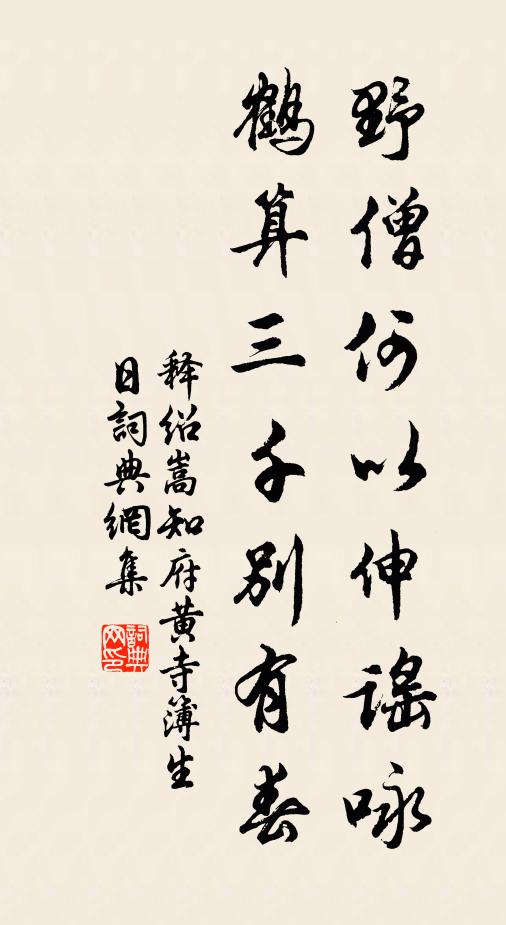 野僧何以伸謡咏
鶴算三千別有春
释绍嵩知府黄寺簿生
日詞典網集
詞典
网印